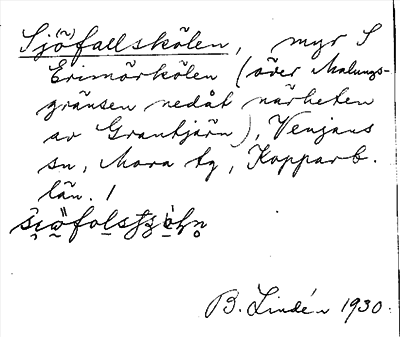 Sjöfallskölen, myr S
Erimörkölen (över Malungs-
gränsen nedåt närheten
av Grantjärn), Venjans
sn, Mora tg, Kopparb.
län. /
B. Lindén 1930.